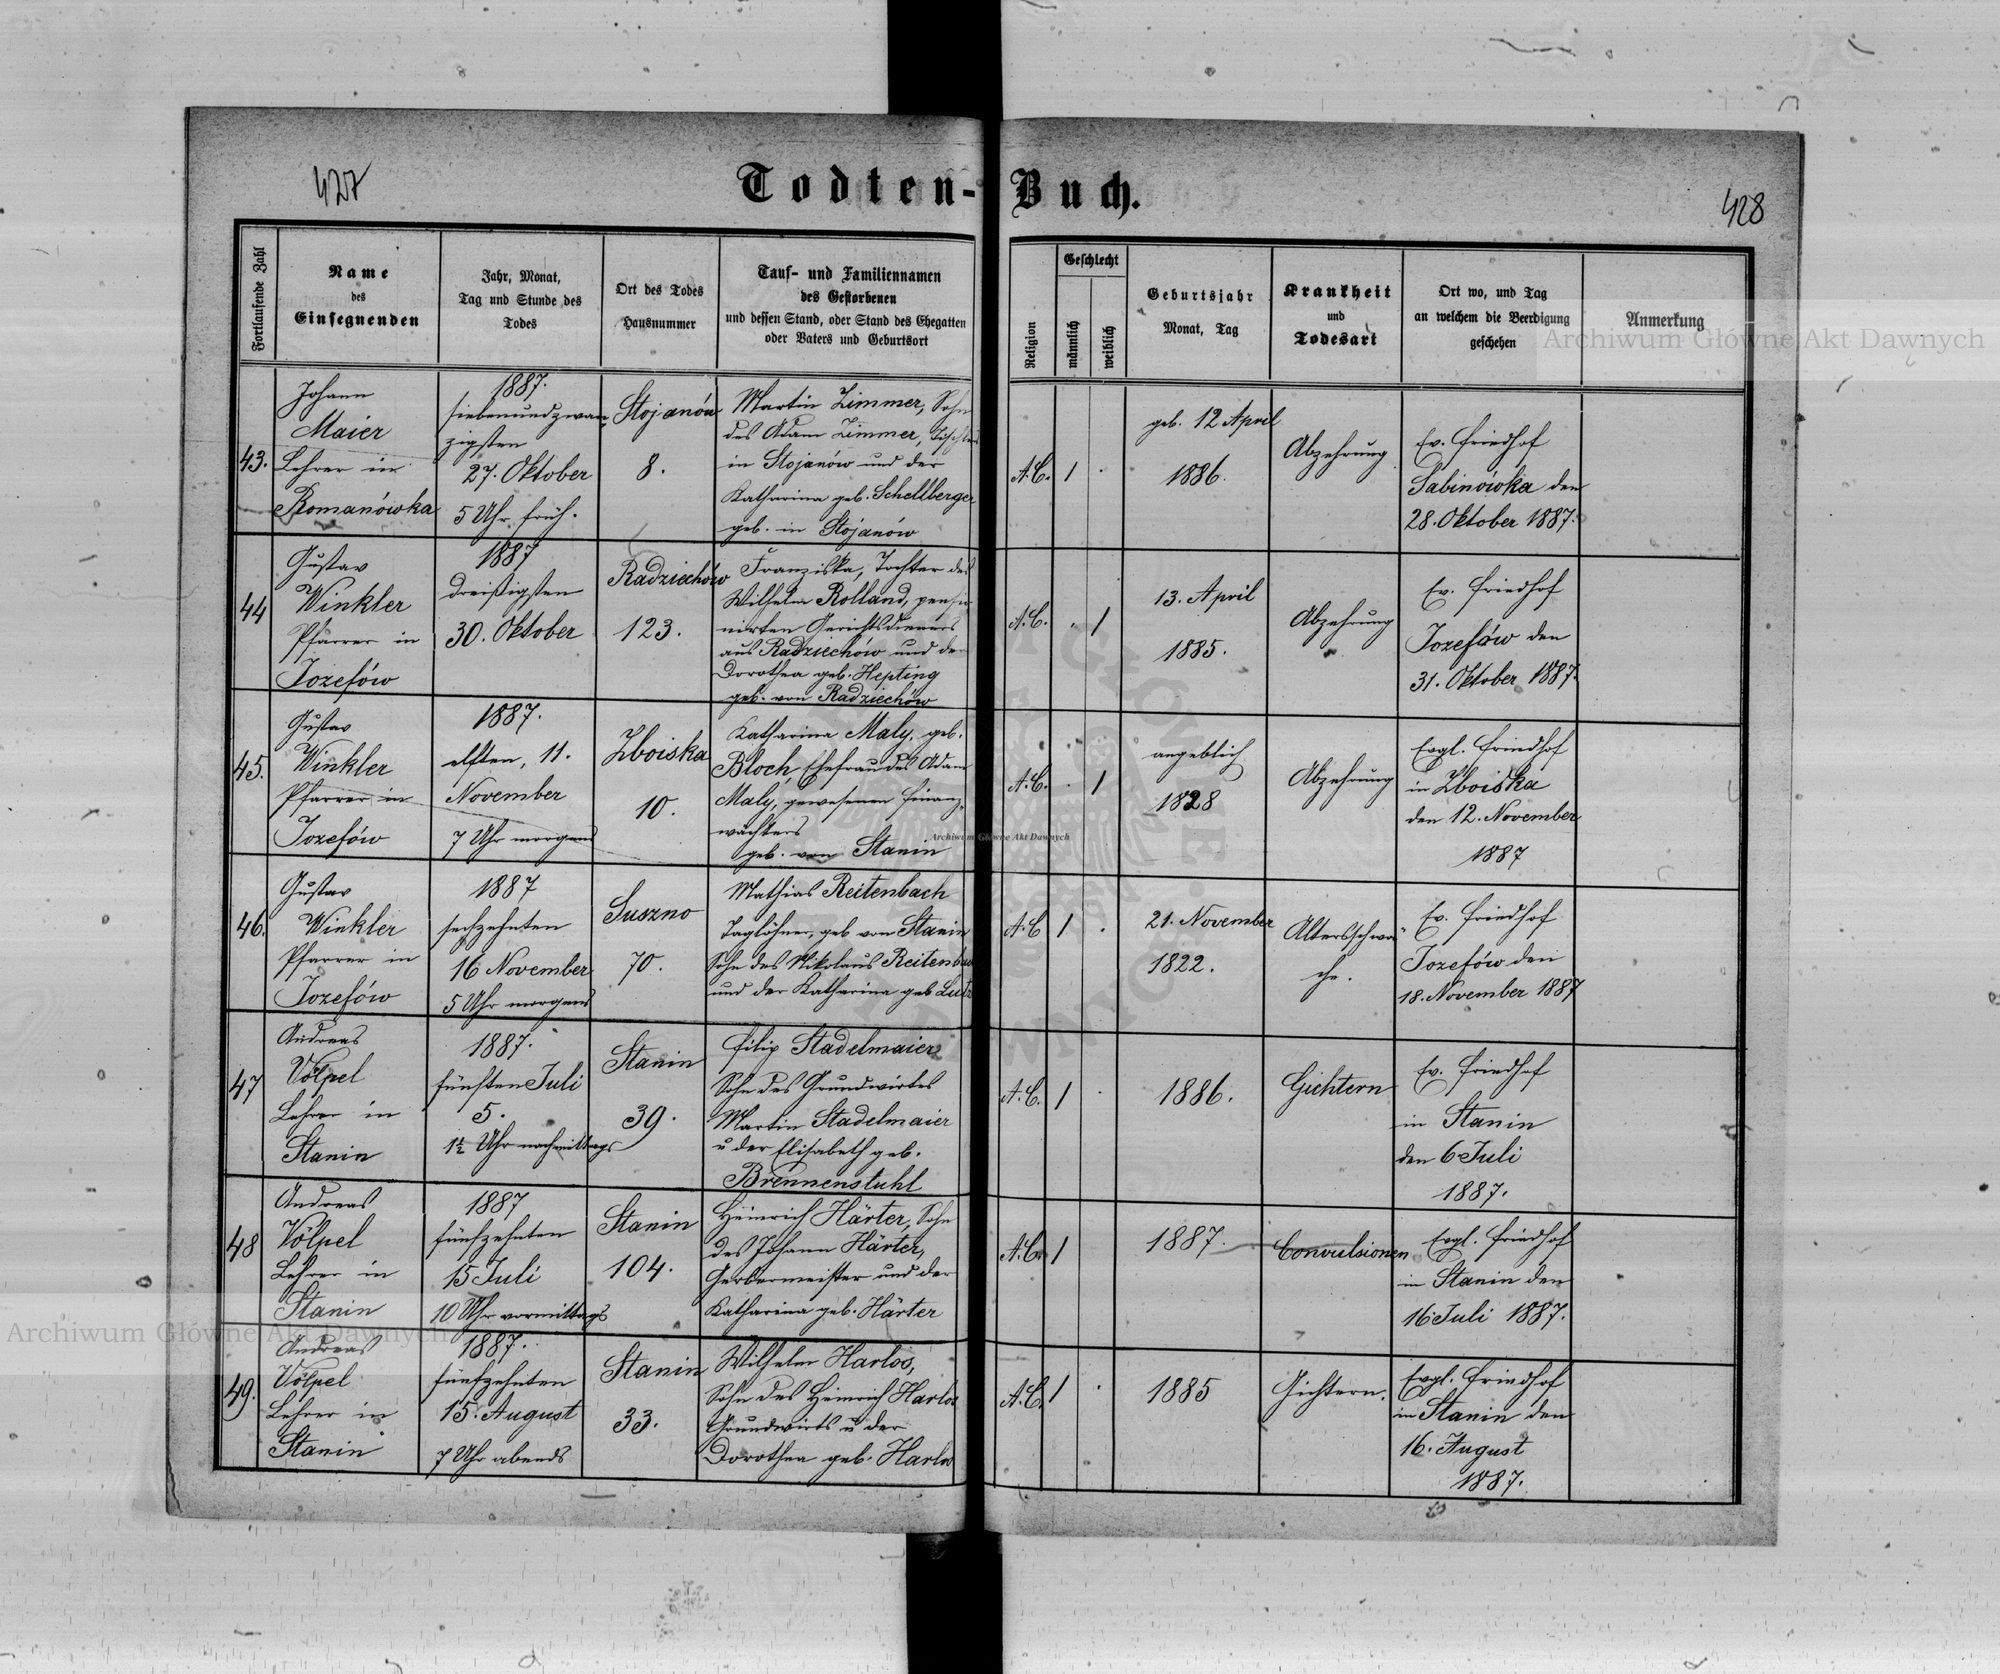 427
Todten-Buch.
428
Fortlaufende Zahl
Name
des
Einsegnenden
Jahr, Monat,
Tag und Stunde des
Todes
Ort des Todes
Hausnummer
Tauf- und Familiennamen
des Gestorbenen
und dessen Stand, oder Stand des Ehegatten
oder Vaters und Geburtsort
Religion
Geschlecht
männlich
weiblich
Geburtsjahr
Monat, Tag
Krankheit
und
Todesart
Ort wo, und Tag
an welchem die Beerdigung
geschehen
Anmerkung
43.
Johann
Maier
Lehrer in
Romanówka
1887.
siebenundzwan-
zigsten
27. Oktober
5 Uhr früh.
Stojanów
8.
Martin Zimmer, Sohn
des Adam Zimmer, Tischlers
in Stojanów und der
Katharina geb. Schellberger
geb. in Stojanów
A.C.
1
.
geb. 12 April
1886.
Abzehrung
Ev. Friedhof
Sabinówka den
28. Oktober 1887.
44
Gustav
Winkler
Pfarrer in
Jozefów
1887
Dreißigsten
30. Oktober
Radziechów
123.
Franziska, Tochter des
Wilhelm Rolland, pensio
nirten Gerichtsdieners
aus Radziechów und der
Dorothea geb. Hepting
geb. von Radziechów
A.C.
.
1
13. April
1885.
Abzehrung
Ev. Friedhof
Jozefów den
31. Oktober 1887.
45.
Gustav
Winkler
Pfarrer in
Jozefów
1887.
elften, 11.
November
7 Uhr morgens
Zboiska
10.
Katharina Maly, geb.
Bloch, Ehefrau des Adam
Maly, gewesenen Finanz-
wächters
geb. von Stanin
A.C.
.
1
angeblich
1828
Abzehrung
Evgl. Friedhof
in Zboiska
den 12. November
1887
46.
Gustav
Winkler
Pfarrer in
Jozefów
1887
sechzehnten
16 November
5 Uhr morgens
Suszno
70.
Mathias Reitenbach
Taglöhner, geb von Stanin
Sohn des Nikolaus Reitenbach
und der Katharina geb
A.C
1
.
21. November
1822.
Altersschwä
che.
Ev. Friedhof
Jozefów den
18. November 1887
47
Andreas
Völpel
Lehrer in
Stanin
1887.
fünften Juli
5.
1½ Uhr nachmittags
Stanin
39.
Filip Stadelmaier
Sohn des Grundwirtes
Martin Stadelmaier
u der Elisabeth geb.
Brennenstuhl
A.C.
1
.
1886.
Gichtern
Ev. Friedhof
in Stanin
den 6 Juli
1887.
48
Andreas
Völpel
Lehrer in
Stanin
1887
fünfzehnten
15 Juli
10 Uhr vormittags
Stanin
104.
Heinrich Härter, Sohn
des Johann Härter,
Gerbermeister und der
Katharina geb. Härter
A.C.
1
1887.
Convulsionen
Evgl. Friedhof
in Stanin den
16 Juli 1887.
49.
Andreas
Völpel
Lehrer in
Stanin
1887.
fünfzehnten
15. August
7 Uhr abends
Stanin
33.
Wilhelm Harlos,
Sohn des Heinrich Harlos
Grundwirts u der
Dorothea geb. Harlos
A.C.
1
.
1885
Gichtern.
Evgl. Friedhof
in Stanin den
16. August
1887.
Archiwum Główne Akt Dawnych
Archiwum Główne Akt Dawnych
Archiwum Główne Akt Dawnych